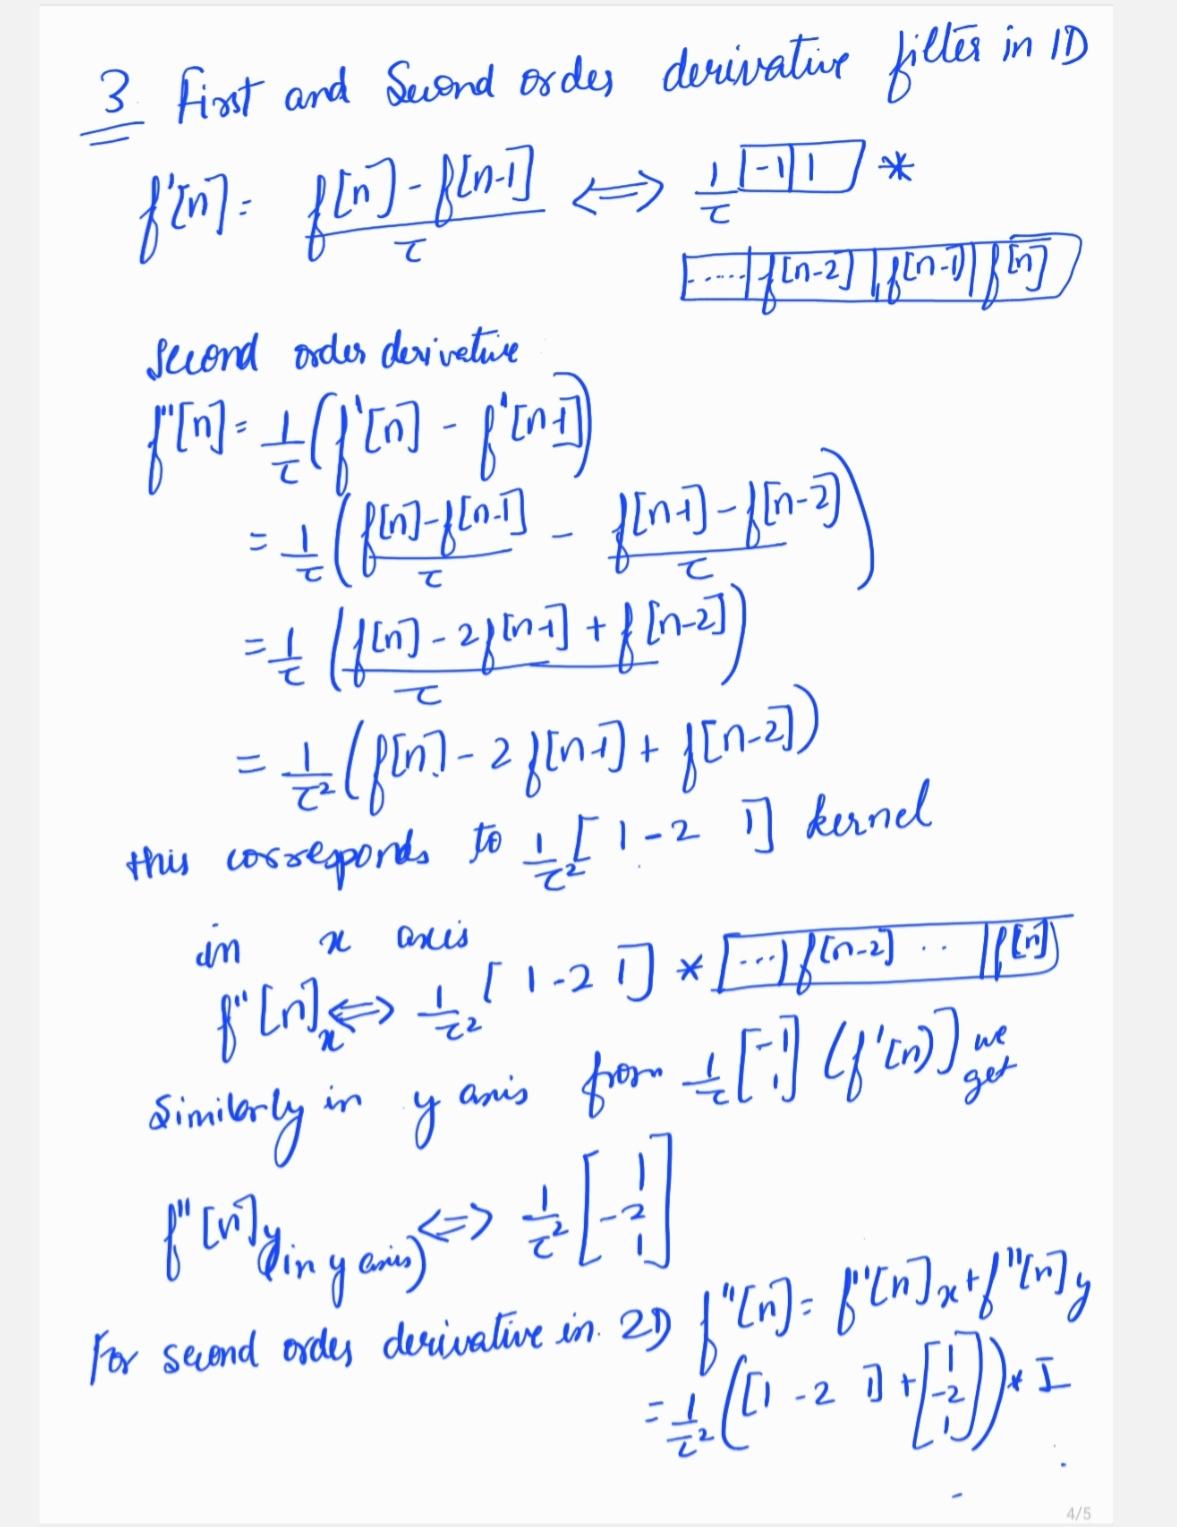 3 First and Second order derivative filter in 1D
f'[n] = (f[n] - f[n-1])/τ ⟺ 1/τ [-1 | 1] *
[..... | f[n-2] | f[n-1] | f[n]]
second order derivative
f''[n] = 1/τ (f'[n] - f'[n-1])
= 1/τ ((f[n] - f[n-1])/τ - (f[n-1] - f[n-2])/τ)
= 1/τ ((f[n] - 2f[n-1] + f[n-2])/τ)
= 1/τ² (f[n] - 2f[n-1] + f[n-2])
this corresponds to 1/τ² [1 -2 1] kernel
in x axis
f''[n]x ⟺ 1/τ² [1 -2 1] * [... | f[n-2] .. | f[n]]
Similarly in y axis from 1/τ [-1 1] (f'[n])] we get
f''[n]y (in y axis) ⟺ 1/τ² [1 -2 1]
For second order derivative in 2D f''[n] = f''[n]x + f''[n]y
= 1/τ² ([1 -2 1] + [1 -2 1]) * I
4/5